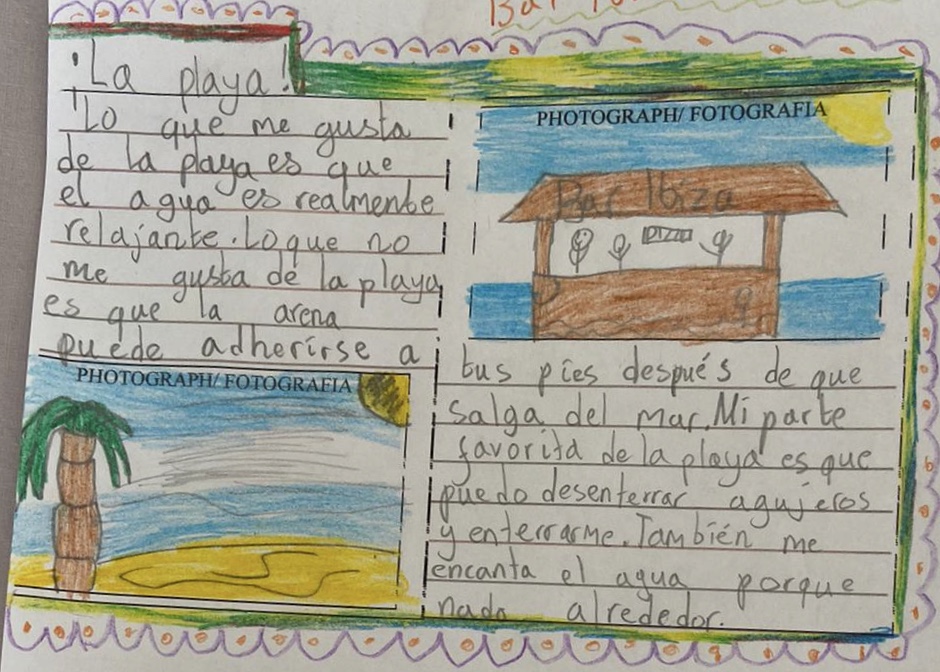 ¡La playa!
Lo que me gusta
de la playa es que
el agua es realmente
relajante. Lo que no
me gusta de la playa
es que la arena
puede adherirse a
PHOTOGRAPH/ FOTOGRAFIA
PHOTOGRAPH/ FOTOGRAFIA
Bar Ibiza
tus pies después de que
salga del mar. Mi parte
favorita de la playa es que
puedo desenterrar agujeros
y enterrarme. También me
encanta el agua porque
nado alrededor.